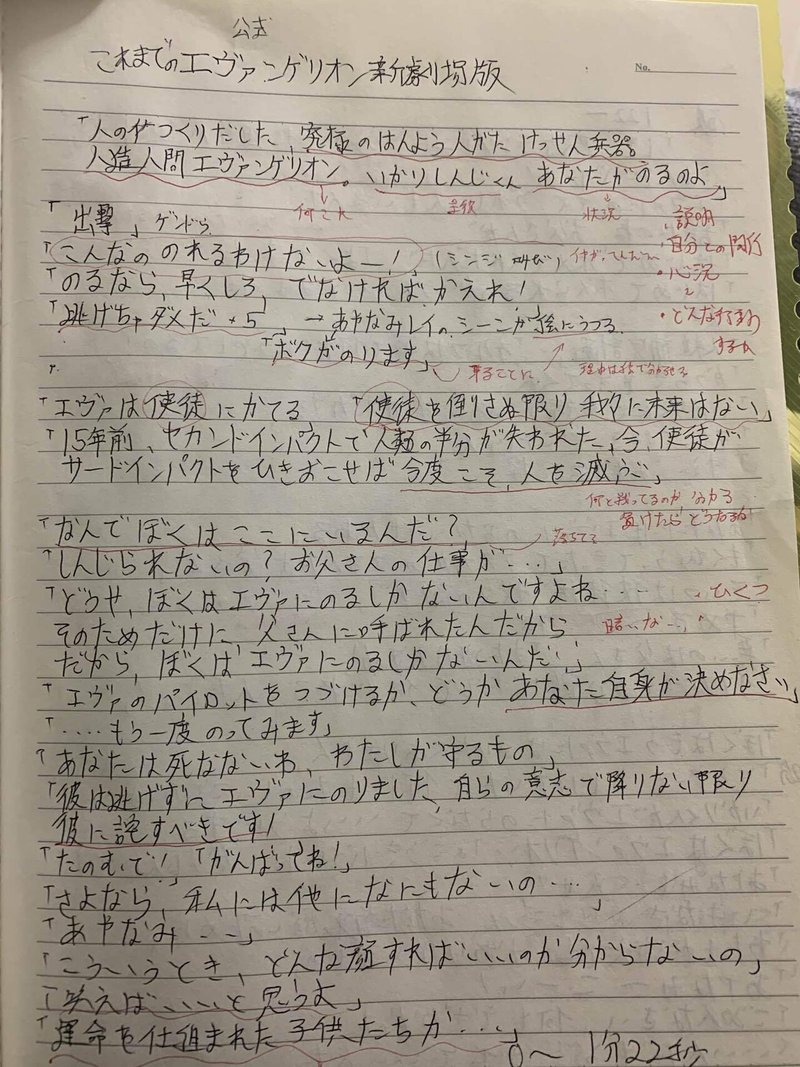 公式
これまでのエヴァンゲリオン新劇場版
No.
「人の つくりだした、究極のはんよう人がた けっせん兵器。
人造人間エヴァンゲリオン。いかりしんじくん あなたがのるのよ」
何これ 主役 状況 ・説明
「出撃」ゲンドウ
・自分との関行
「こんなの のれるわけないよー!」(シンジ 叫び)
・心況
「のるなら、早くしろ、でなければ、かえれ!
・どんな行動
するか
「逃げちゃダメだ×5」→あやなみレイのシーンが絵にうつる。
「ボクがのります」
乗ることに 理由は後で分かる
「エヴァは使徒にかてる 「使徒を倒さぬ限り 我々に未来はない」
「15年前、セカンドインパクトで人類の半分が失われた、今、使徒が
サードインパクトをひきおこせば 今度こそ、人を滅ぶ」
何と戦ってるのか 分かる
負けたら どうなるか
「なんで ぼくは ここに いるんだ?」
「しんじられないの? お父さんの仕事が・・・」
「どうせ、ぼくはエヴァにのるしかないんですよね・・・・
・ひくつ
そのためだけに 父さんに呼ばれたんだから
暗いな
だから、ぼくはエヴァにのるしかないんだ」
「エヴァのパイロットをつづけるか、どうか あなた自身が決めなさい」
「・・・・もう一度のってみます」
「あなたは死なないわ、わたしが守るもの」
「彼は逃げずにエヴァにのりました、自らの意志で降りない限り
彼に託すべきです!
「たのむで!」「がんばってね!」
「さよなら、私には他になにもないの・・・」
「あやなみ・・」
「こういうとき、どんな顔すればいいのか分からないの」
「笑えばいいと思うよ」
「運命を仕組まれた子供たちが・・・」
0〜1分22秒